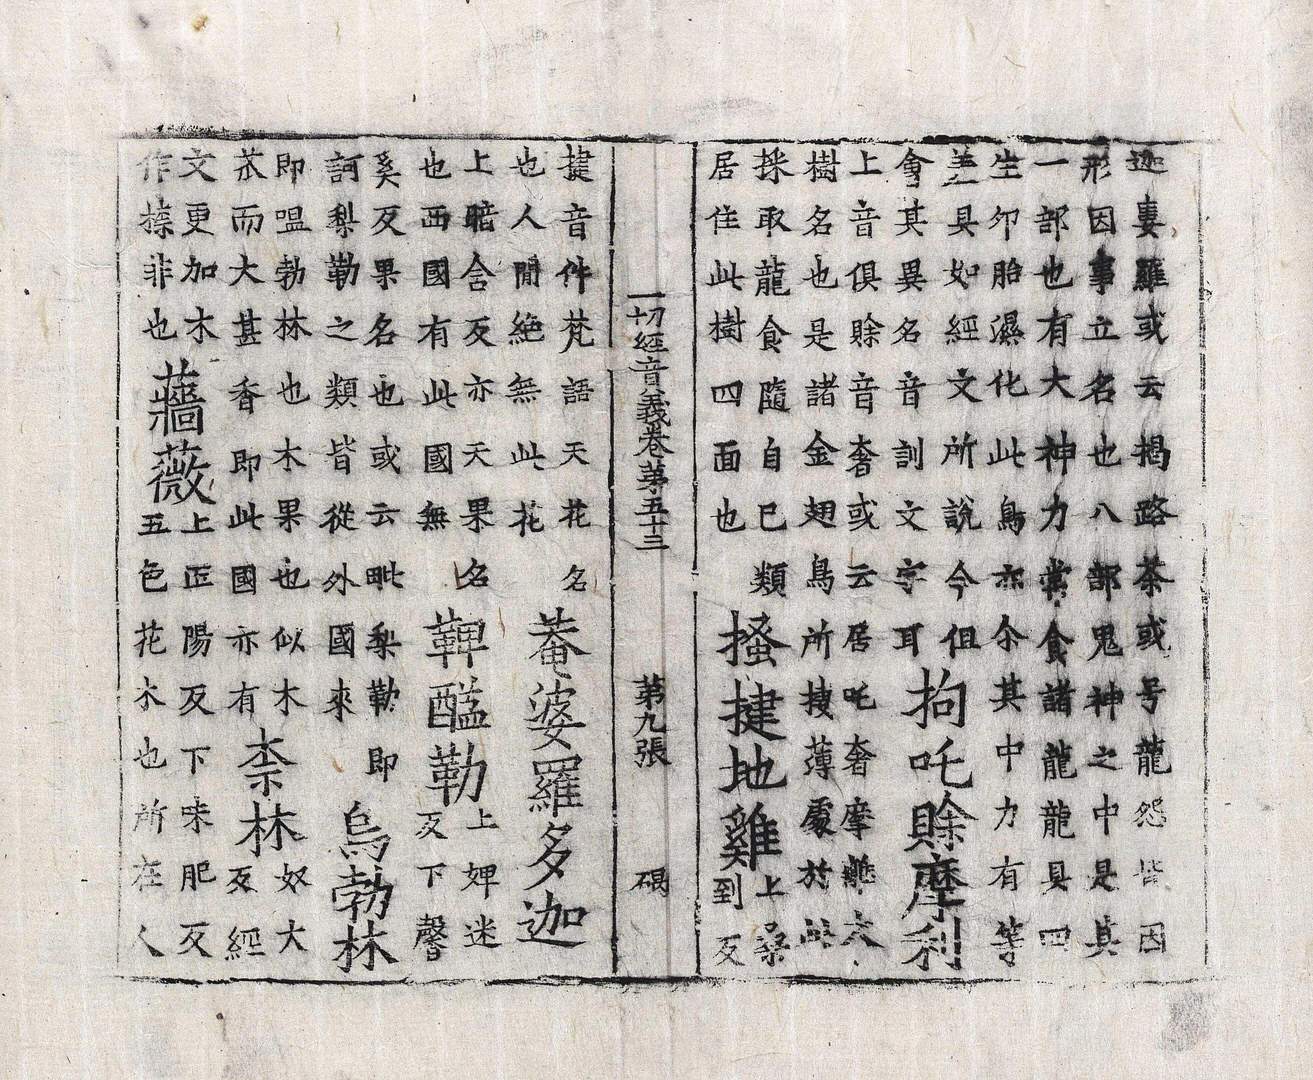 迦婁羅或云揭路荼或号龍怨皆因
形因事立名也八部鬼神之中是其
一部也有大神力常食諸龍龍具四
生卵胎濕化此鳥亦尒其中力有等
差具如經文所說今但
會其異名音訓文字耳
拘吒賖摩利
上音俱賖音奢或云居吒奢摩離大
樹名也是諸金翅鳥所捿薄處於此
採取龍食隨自已類
居住此樹四面也
搔揵地雞
上桑
到反
一切經音義卷第五十三 第九張 碣
揵音件梵語天花名
也人間絶無此花
菴婆羅多迦
上暗含反亦天果名
也西國有此國無
鞞醯勒
上婢迷
反下馨
奚反果名也或云毗梨勒即
訶梨勒之類皆從外國來
烏勃林
即嗢勃林也木果也似木
苽而大甚香即此國亦有
柰林
奴大
反經
文更加木
作㮏非也
薔薇
上正陽反下味肥反
五色花木也所在人